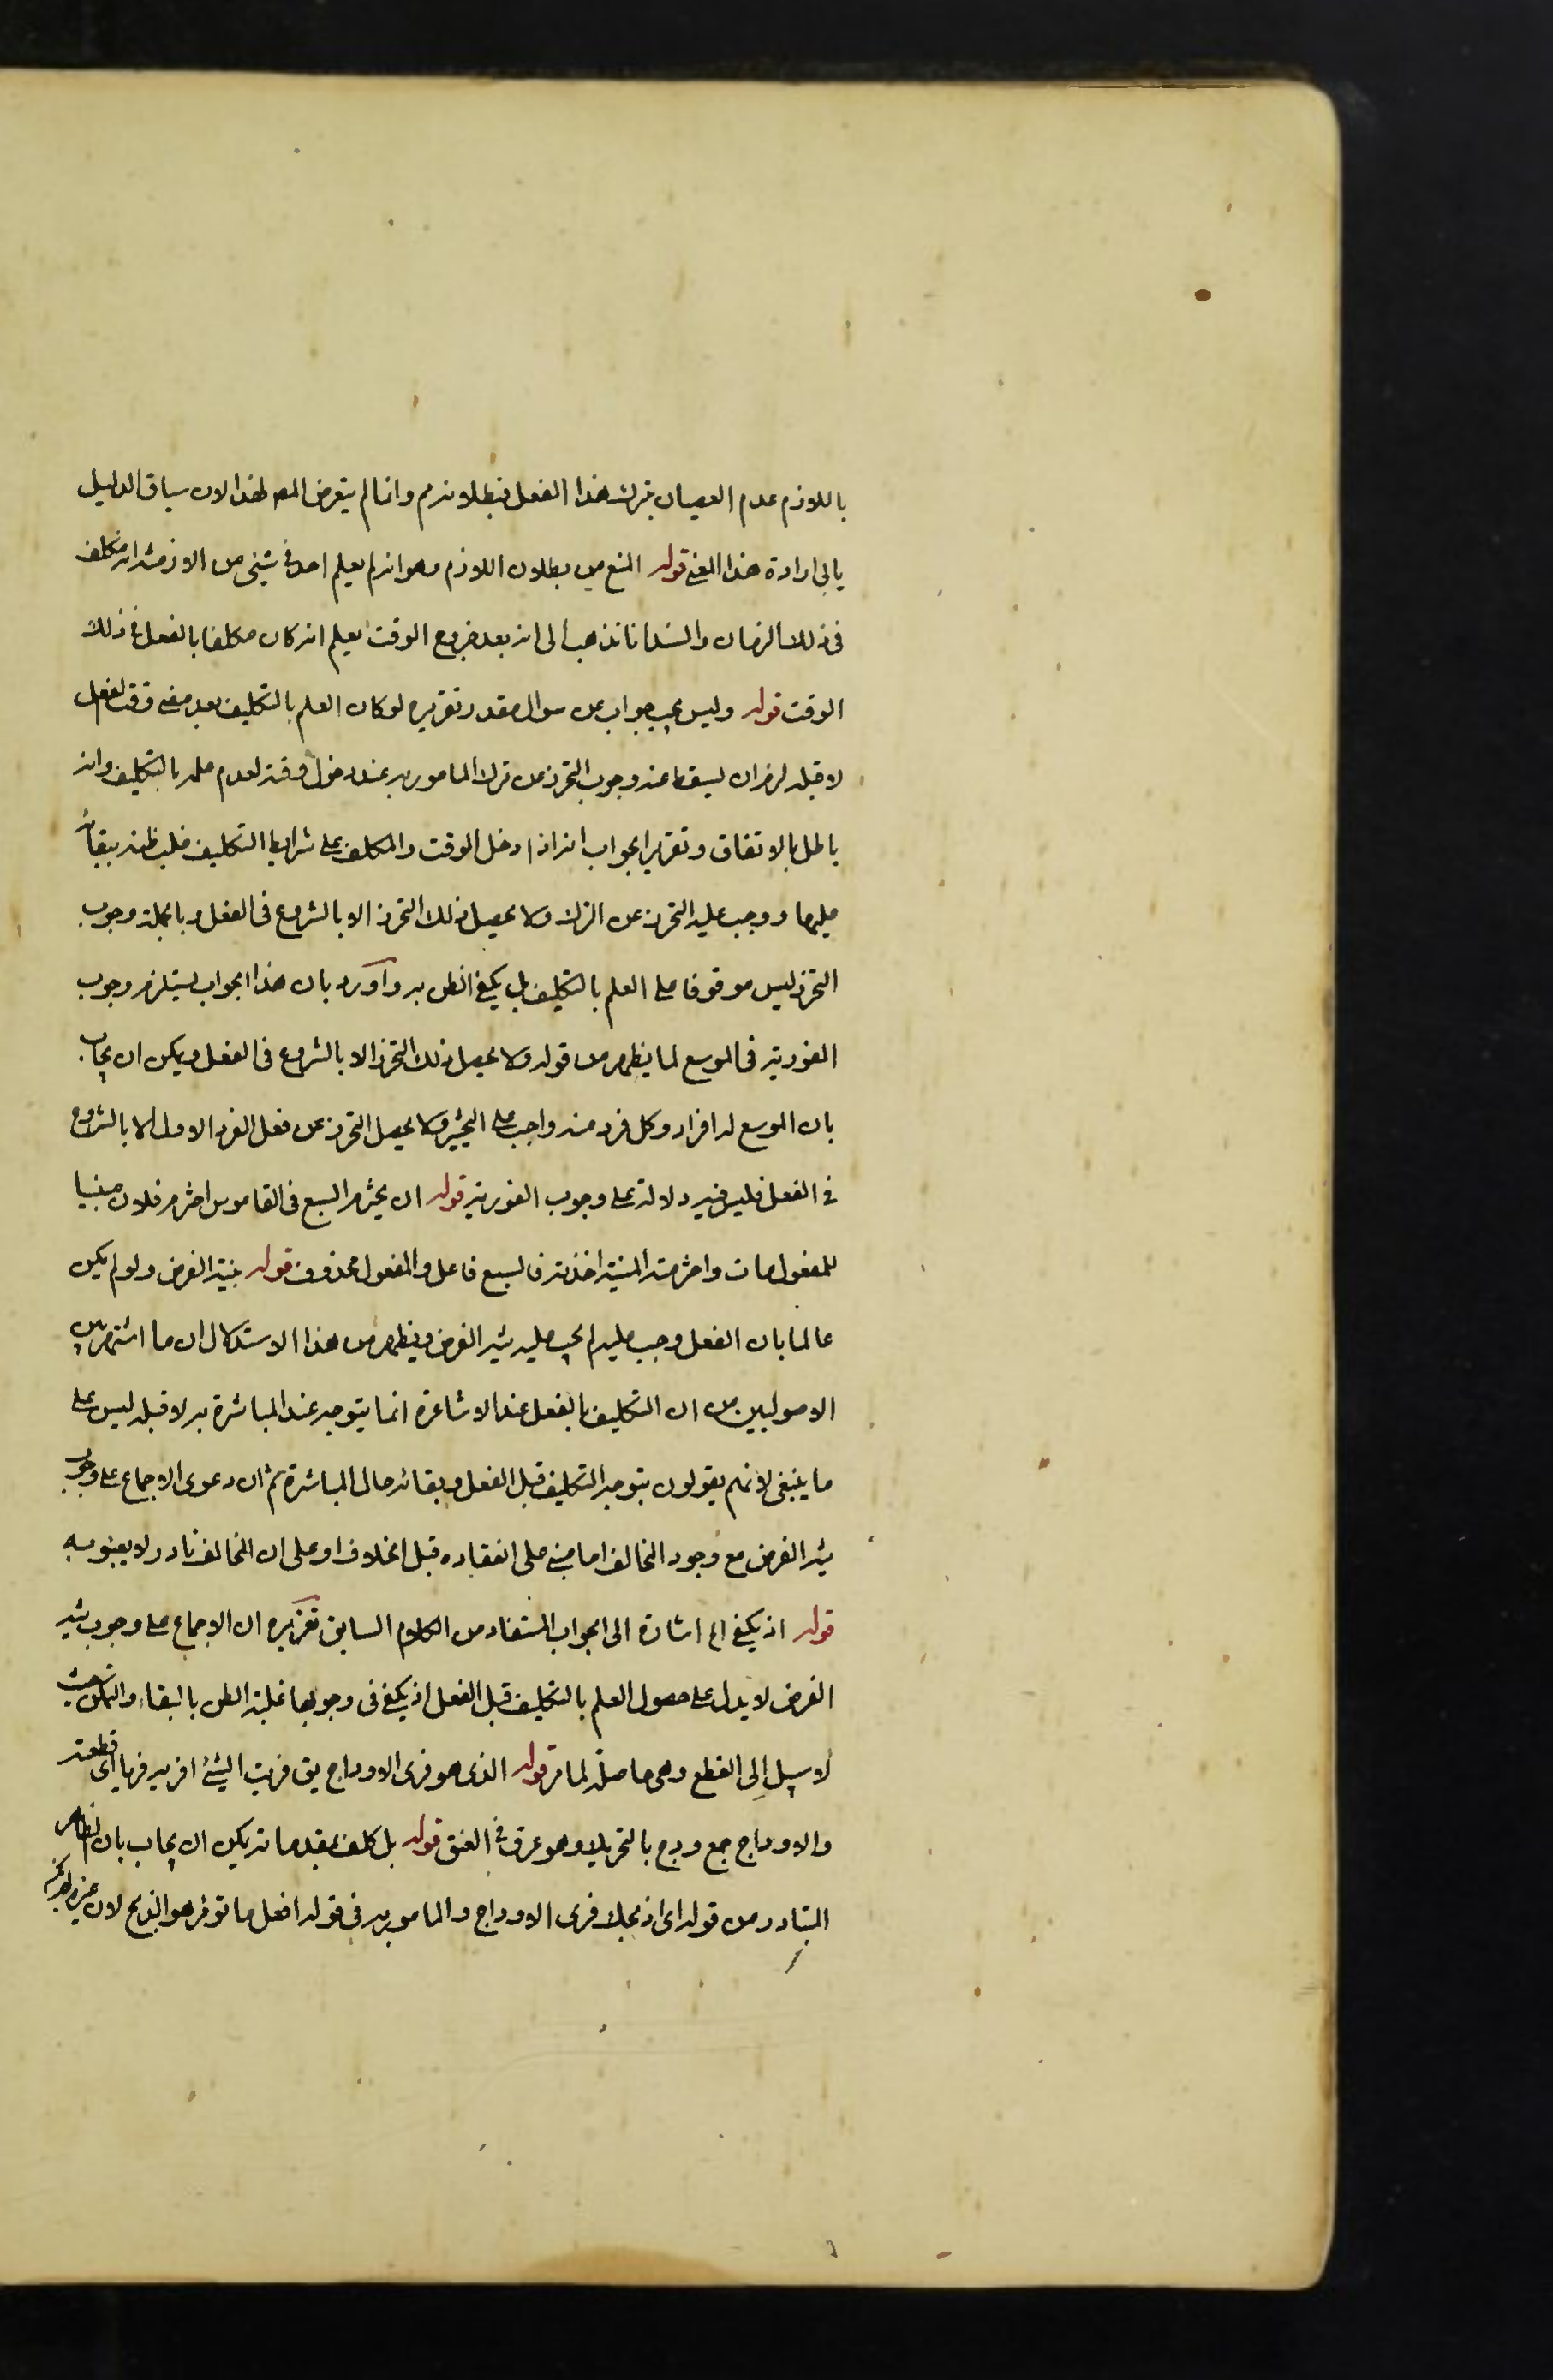 باللازم عدم العصيان بترك هذا الفعل فبطلانه مم وانما لم يتعرض المص لهذا لان سياق الدليل
يابى ارادة هذا المعنى قوله المنع من بطلان اللازم وهو انه لم يعلم احد فى شيئ من الازمنة انه مكلف
فى ذلك الزمان والسند انا نذهب الى انه بعد خروج الوقت يعلم انه كان مكلفا بالفعل فى ذلك
الوقت قوله وليس يجب جواب عن سوال مقدر تقريره لو كان العلم بالتكليف بعد مضى وقت الفعل
لا قبله لزم ان يسقط عنه وجوب التحرز عن ترك المامور به عند دخول وقته لعدم علمه بالتكليف وانه
باطل بالاتفاق وتقرير الجواب انه اذا دخل الوقت والمكلف على شرايط التكليف فغلب ظنه ببقائه
عليها ووجب عليه التحرز عن الترك ولا يحصل ذلك التحرز الا بالشروع فى الفعل وبالجملة وجوب
التحرز ليس موقوفا على العلم بالتكليف بل يكفى الظن به واورد بان هذا الجواب يستلزم وجوب
الفورية فى الموسع لما يظهر من قوله ولا يحصل ذلك التحرز الا بالشروع فى الفعل ويمكن ان يجاب
بان الموسع له افراد وكل فرد منه واجب على التخيير ولا يحصل التحرز عن فعل الفرد الاول الا بالشروع
فى الفعل فليس فيه دلالة على وجوب الفورية قوله ان يخترم السبع فى القاموس اخترم فلان مبنيا
للمفعول مات واخترمته المنية اخذته فالسبع فاعل والمفعول محذوف قوله بنية الفرض ولو لم يكن
عالما بان الفعل وجب عليه لم يجب عليه نية الفرض ويظهر من هذا الاستدلال ان ما اشتهر بين
الاصوليين من ان التكليف بالفعل عند الاشاعرة انما يتوجه عند المباشرة به لا قبله ليس على
ما ينبغى لانهم يقولون بتوجه التكليف قبل الفعل وبقائه حال المباشرة ثم ان دعوى الاجماع على وجوب
نية الفرض مع وجود المخالف اما مبنى على انعقاده قبل الخلاف او على ان المخالف نادر لا يعبؤ به
قوله اذ يكفى الخ اشارة الى الجواب المستفاد من الكلام السابق تقريره ان الاجماع على وجوب نية
الفرض لا يدل على حصول العلم بالتكليف قبل الفعل اذ يكفى فى وجوبها غلبة الظن بالبقاء والتمكن حيث
لا سبيل الى القطع وهى حاصلة لما مر قوله الذى هو فرى الاوداج يق فريت الشئ افريه فريا اى قطعته
والاوداج جمع ودج بالتحريك وهو عرق فى العنق قوله بل كلف بمقدماته يمكن ان يجاب بان الظاهر
المتبادر من قوله انى اذبحك فرى الاوداج والمامور به فى قوله افعل ما تؤمر هو الذبح لان غيره لم يذكر